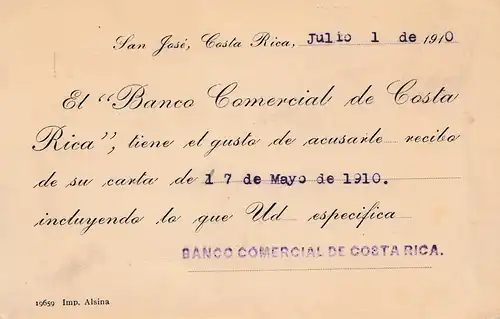 San José, Costa Rica, Julio 1 de 1910
El "Banco Comercial de Costa
Rica", tiene el gusto de acusarle recibo
de su carta de 17 de Mayo de 1910.
incluyendo lo que Ud especifica
BANCO COMERCIAL DE COSTA RICA.
19659 Imp. Alsina